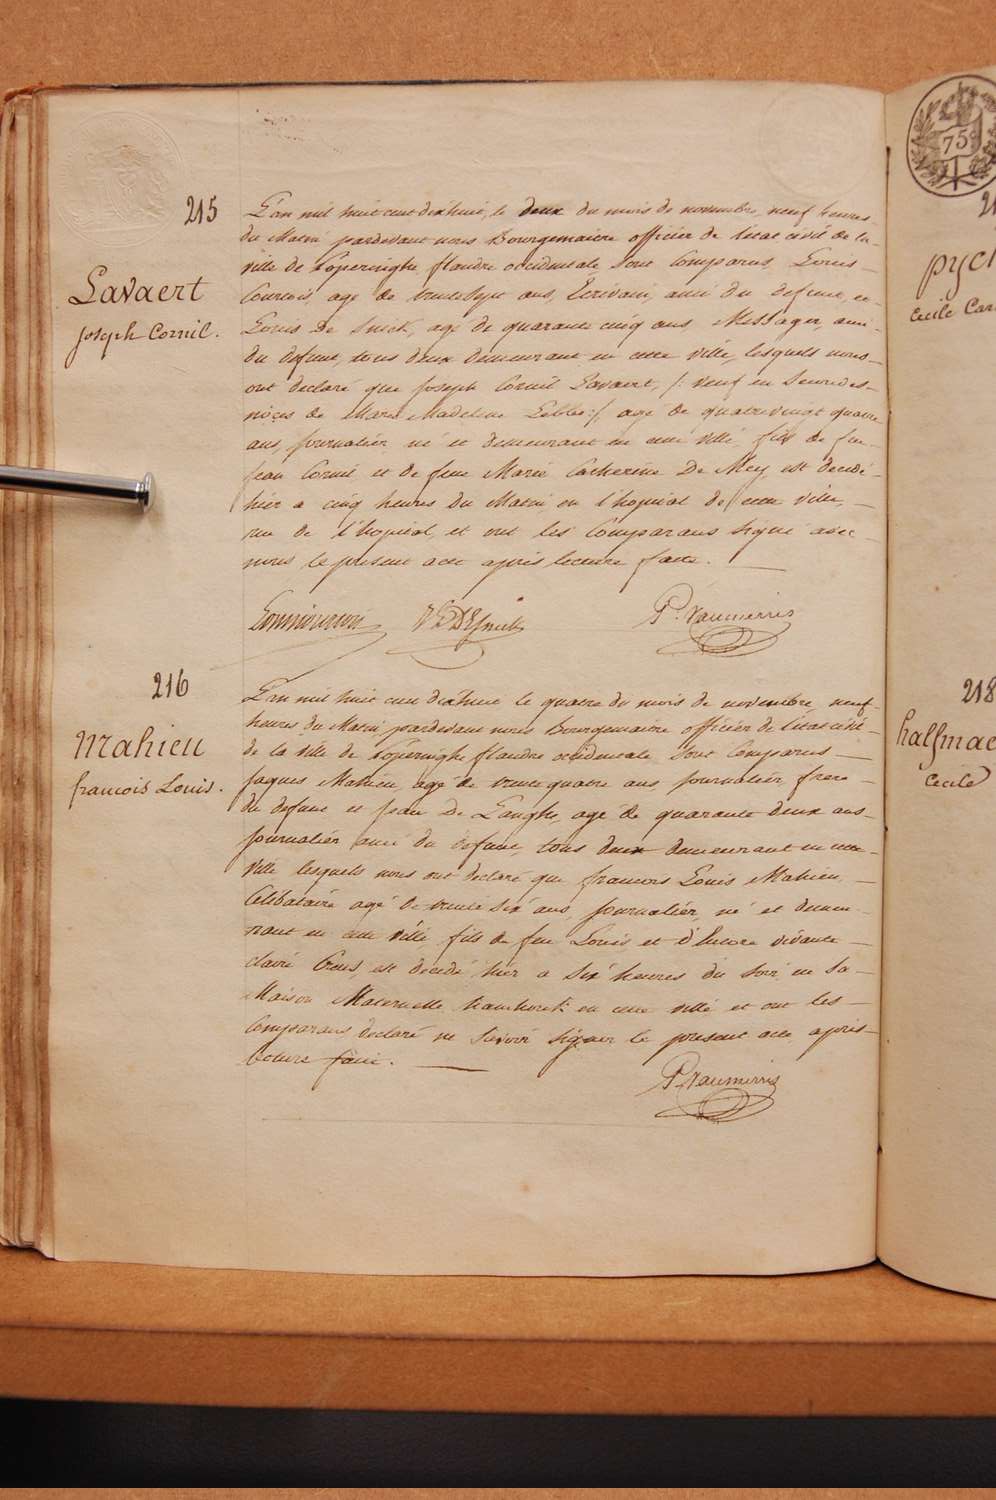 215
Lavaert
Joseph Cornil.
L'an mil huit cent dixhuit, le deux du mois de novembre, neuf heures
du Matin pardevant nous Bourgemaitre officier de l'état civil de la
ville de Poperinghe flandre occidentale sont Comparus, Louis
Courtois, agé de trente sept ans, Ecrivain, ami du defunt, et
Louis De Snick, agé de quarante cinq ans, Messager, ami
du defunt, tous deux demeurant en cette ville, lesquels nous
ont declaré que Joseph Cornil Lavaert, /: veuf en secondes
noçes de Marie Madeleine :/, agé de quatrevingt quatre
ans, journalier, né et demeurant en cette ville, fils de feu
Jean Cornil et de feue Marie Catherine De Mey, est decédé
hier a cinq heures du Matin en l'hopital de cette ville,
rue de l'hopital, et ont les Comparans signé avec
nous le present acte après lecture faite.
P. Vanmerris
216
Mahieu
francois Louis.
L'an mil huit cent dixhuit le quatre du mois de novembre, neuf
heures du Matin pardevant nous Bourgemaitre officier de l'état civil
de la ville de Poperinghe flandre occidentale sont Comparus
Jaques Mahieu, agé de trente quatre ans journalier, frere
du defunt et Jean De Langhe, agé de quarante deux ans
Journalier ami du defunt, tous deux demeurant en cette
ville lesquels nous ont declaré que francois Louis Mahieu,
Célibataire agé de trente six ans, journalier, né et demeu
rant en cette ville, fils de feu Louis et d'Encore vivante
claire est decédé hier a six heures du soir en sa
Maison Maternelle en cette ville et ont les
Comparans declaré ne savoir signer le present acte après
lecture faite.
P. Vanmerris
75
pych
Cecile Car
218
halfmae
Cecile